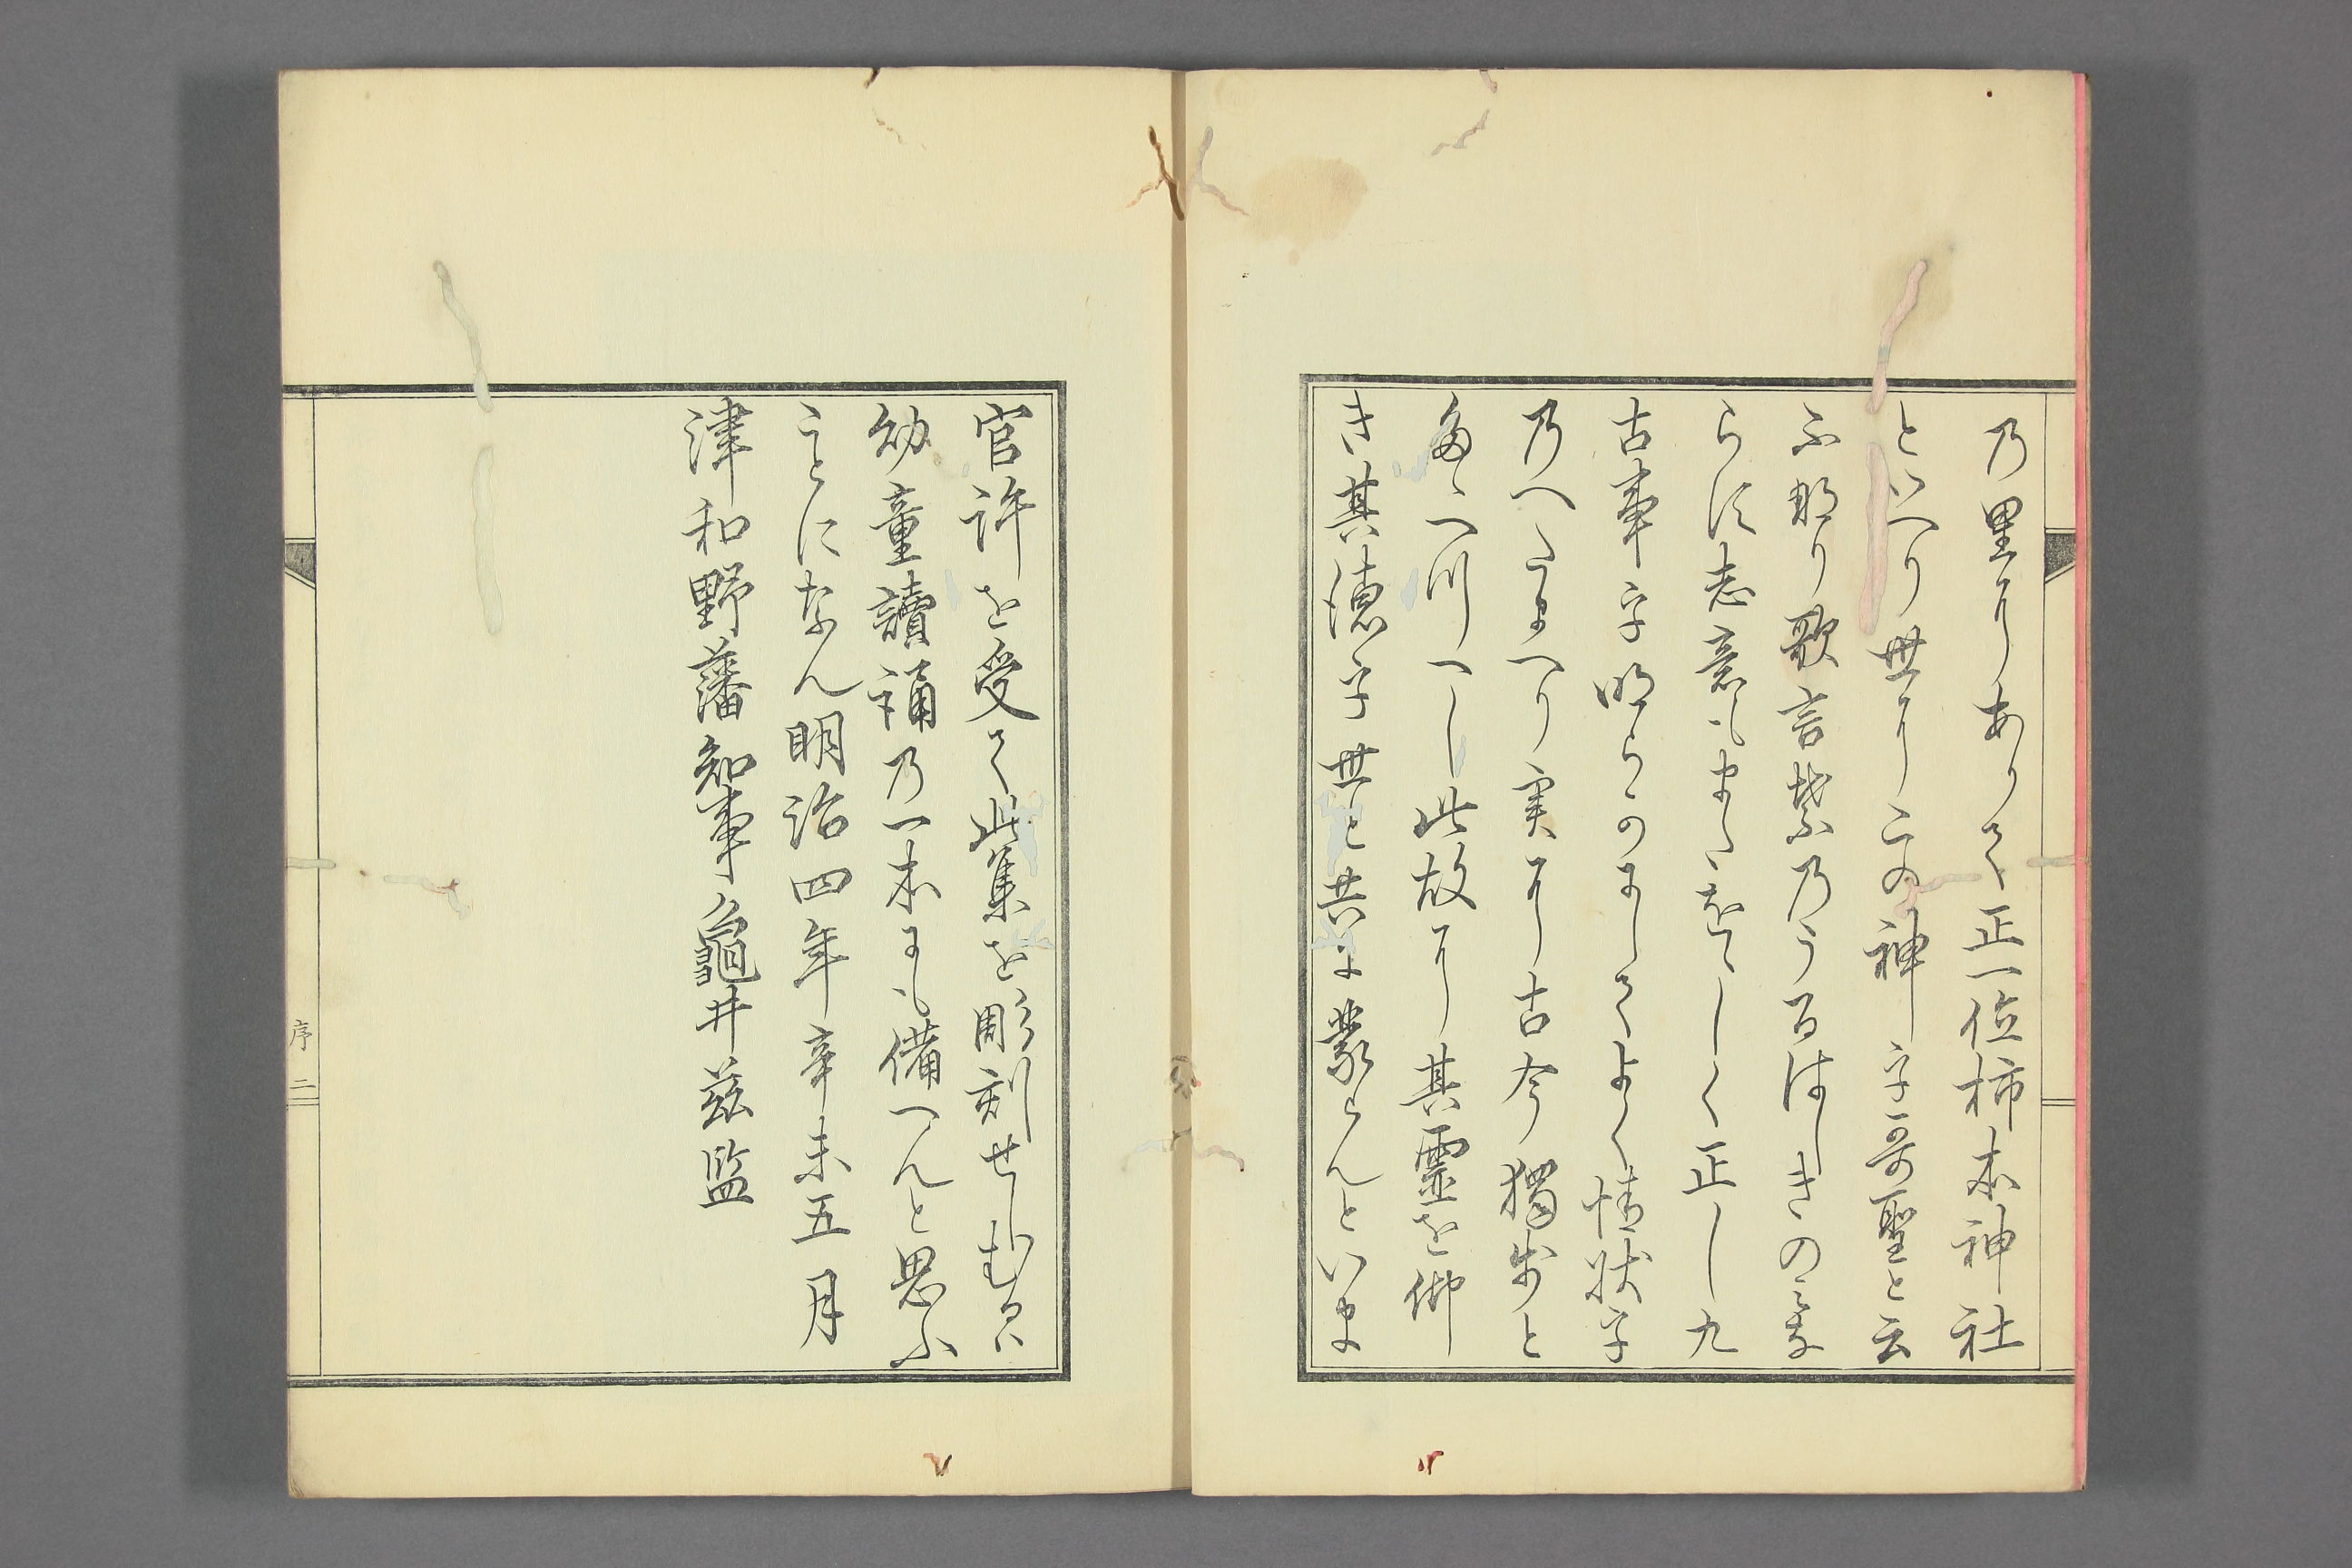 乃里にありて正一位柿本神社
といへり世にこの神を哥聖と云
ふ那り歌言葉乃うるはしきのミな
らす志意もまたをゝしく正し九
古事を明らかにましてよく情状を
乃へたまへり実に古今獨歩と
多ゝへつへし此故に其霊を仰
き其徳を世と共に蒙らんといま
官許を受て此集を彫刻せしむるハ
幼童讀誦乃一本にも備へんと思ふ
ことになん明治四年辛未五月
津和野藩知事龜井茲監
序 二